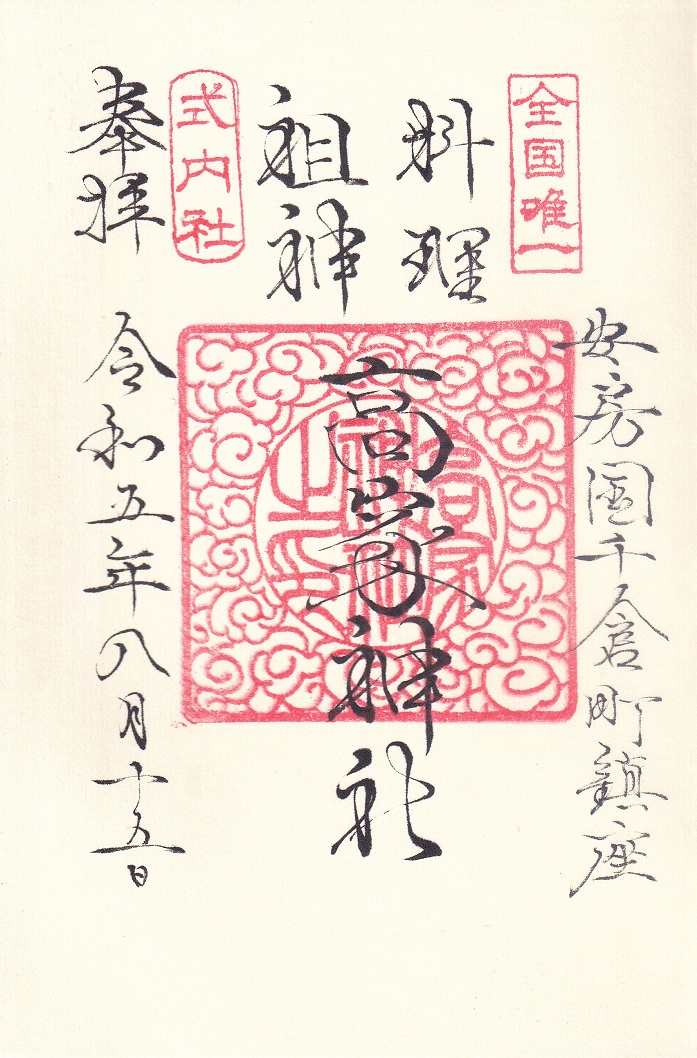 全国唯一
安房国千倉町鎮座
料理
祖神
高家神社
式内社
奉拝
令和五年八月十五日